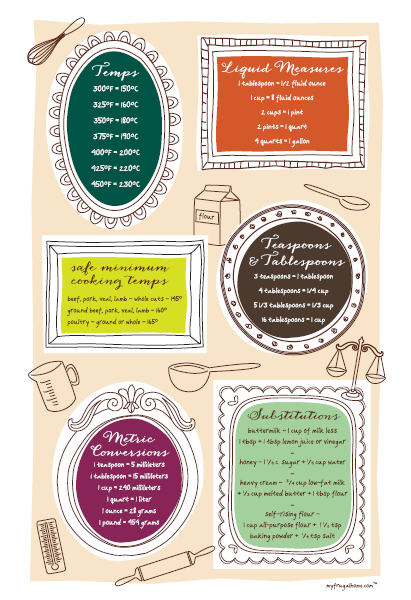 Temps
300°F = 150°C
325°F = 160°C
350°F = 180°C
375°F = 190°C
400°F = 200°C
425°F = 220°C
450°F = 230°C
Liquid Measures
1 tablespoon = 1/2 fluid ounce
1 cup = 8 fluid ounces
2 cups = 1 pint
2 pints = 1 quart
4 quarts = 1 gallon
flour
safe minimum
cooking temps
beef, pork, veal, lamb – whole cuts – 145°
ground beef, pork, veal, lamb – 160°
poultry – ground or whole – 165°
Teaspoons
& Tablespoons
3 teaspoons = 1 tablespoon
4 tablespoons = 1/4 cup
5 1/3 tablespoons = 1/3 cup
16 tablespoons = 1 cup
Metric
Conversions
1 teaspoon = 5 milliliters
1 tablespoon = 15 milliliters
1 cup = 240 milliliters
1 quart = 1 liter
1 ounce = 28 grams
1 pound = 454 grams
Substitutions
buttermilk – 1 cup of milk less
1 tbsp + 1 tbsp lemon juice or vinegar
–
honey – 1 1/4 c sugar + 1/4 cup water
–
heavy cream – 3/4 cup low-fat milk
+ 1/2 cup melted butter + 1 tbsp flour
–
self-rising flour –
1 cup all-purpose flour + 1 1/4 tsp
baking powder + 1/4 tsp salt
myfrugalhome.com™